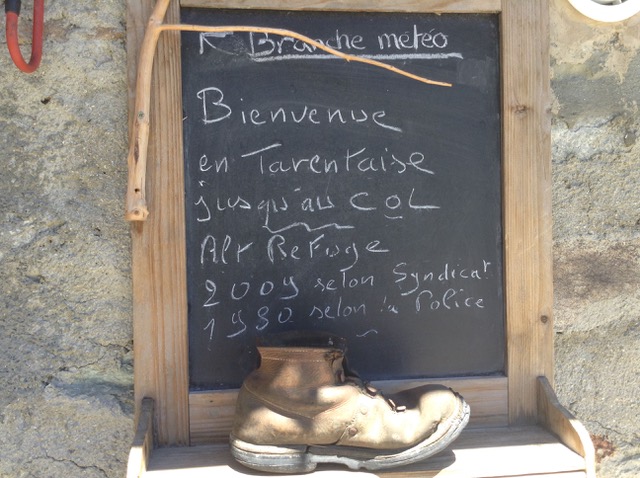 Branche météo
Bienvenue
en Tarentaise
jusqu'au COL
Alt Refuge
2009 selon Syndicat
1980 selon la Police